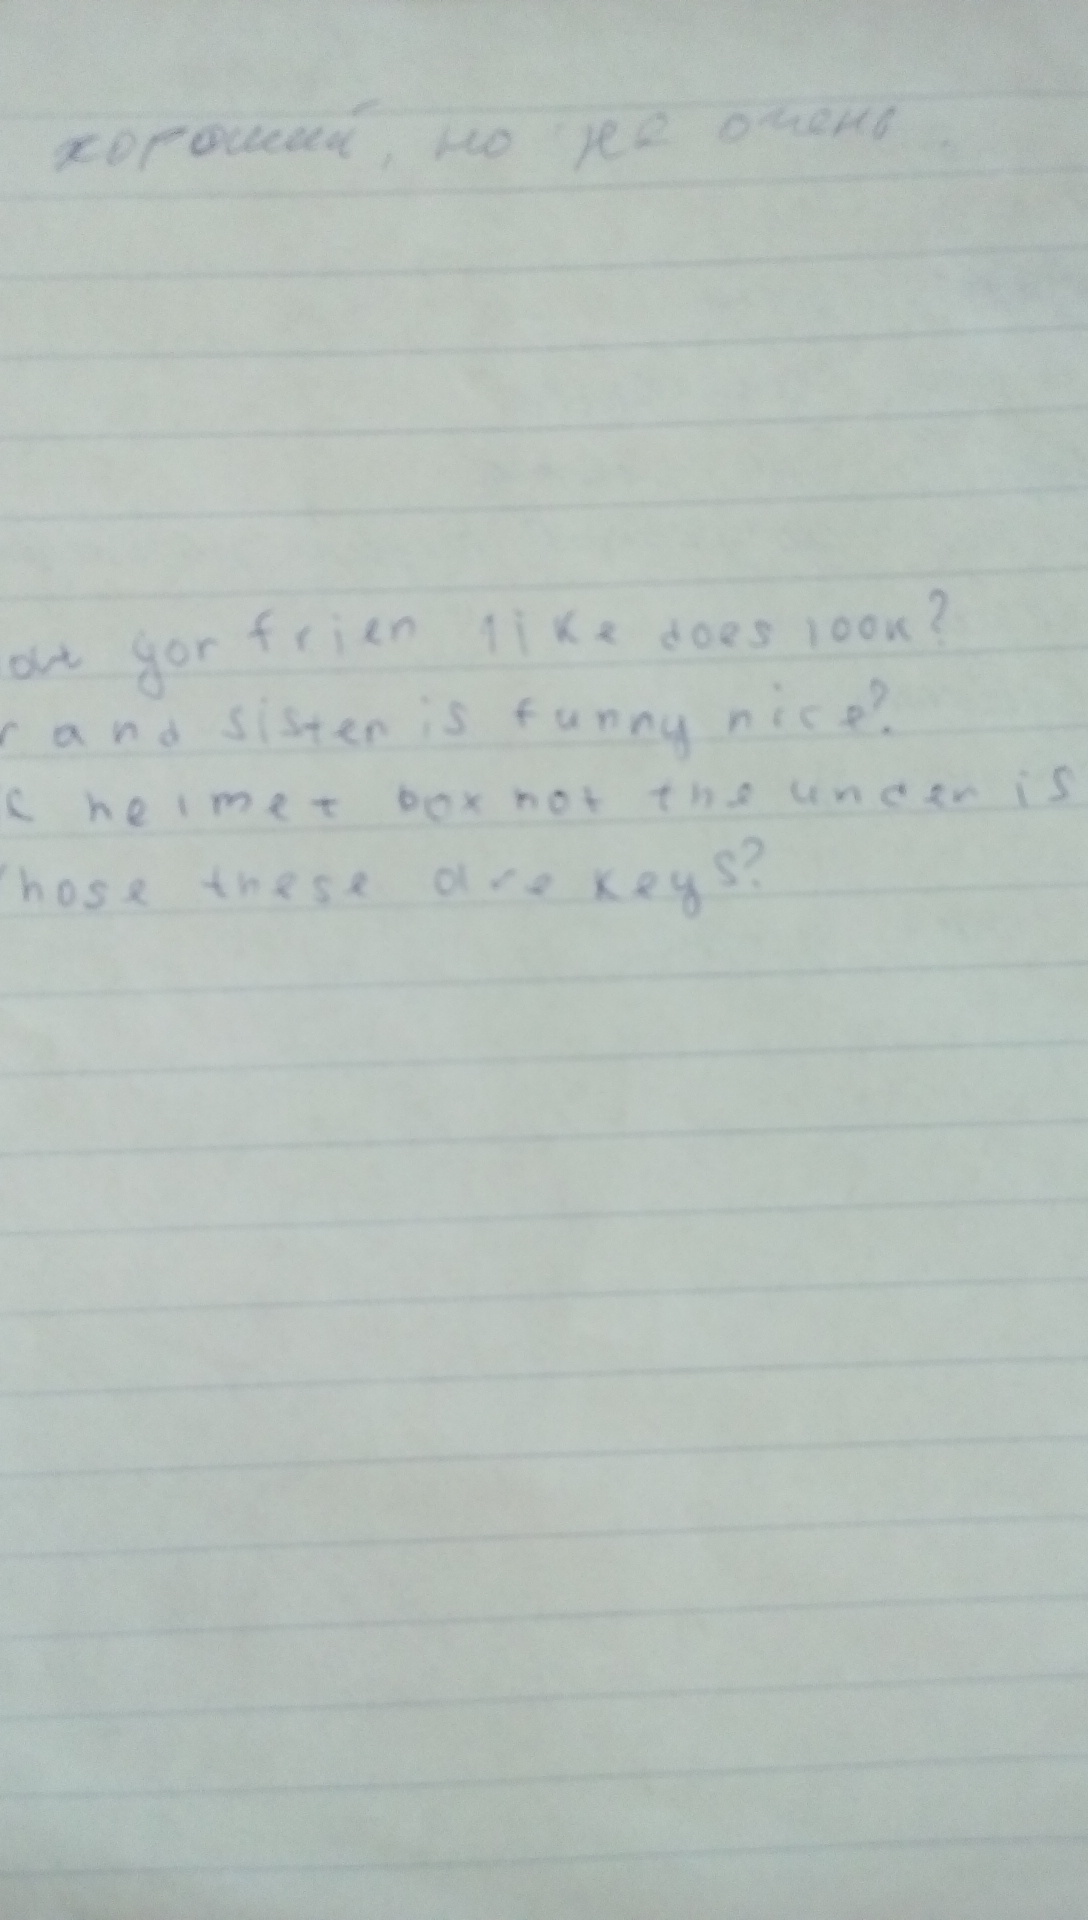 хороший, но не очень.
yor frien like does look?
r and sister is funny nice?
helmet box not the under is
hose these are keys?